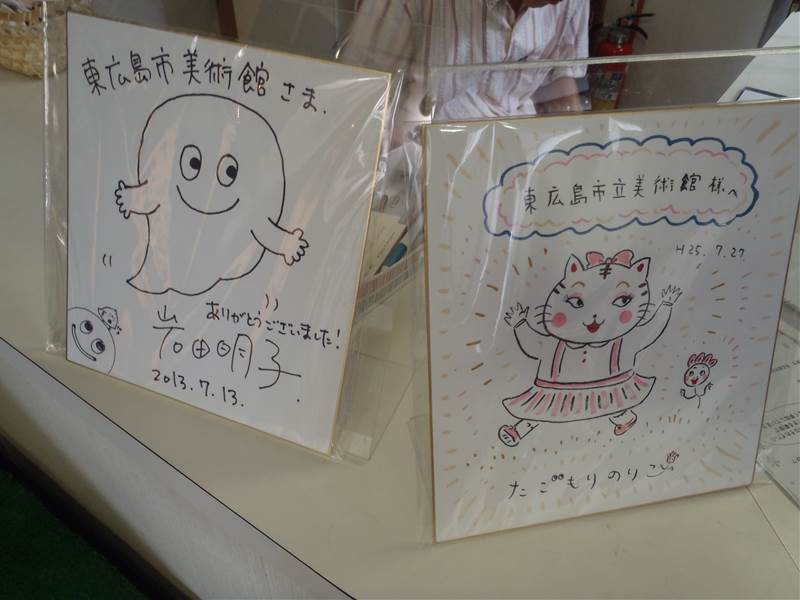 東広島市美術館 さま.
ありがとうございました!
岩田明子
2013.7.13.
東広島市立美術館 様へ
H25.7.27.
たごもりのりこ